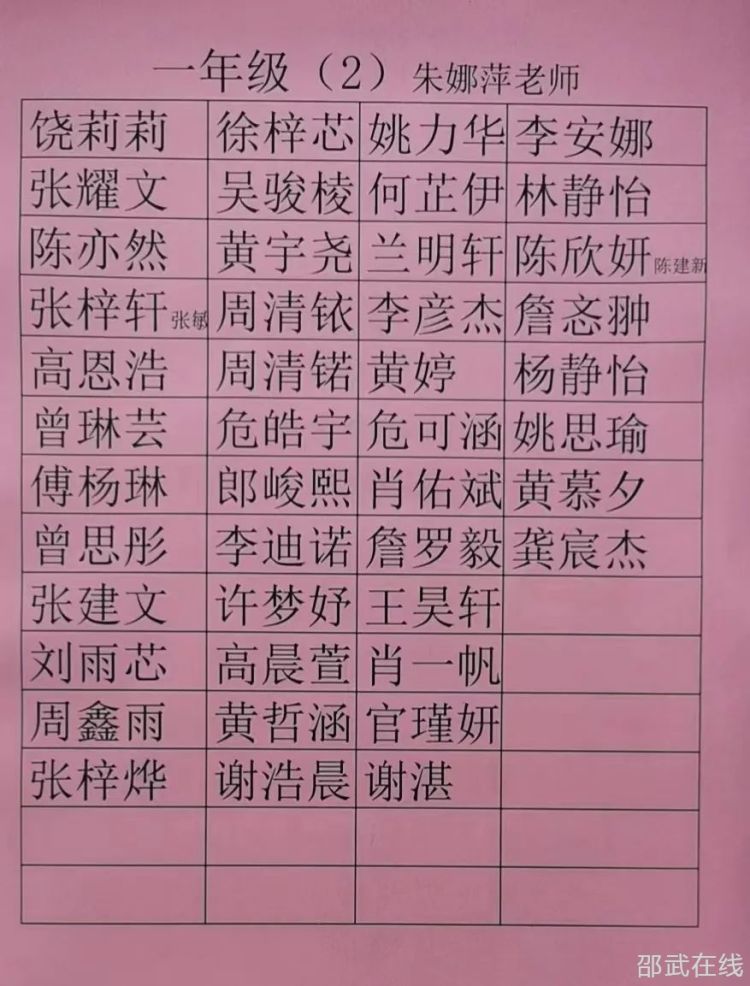 一年级（2）朱娜萍老师
饶莉莉 徐梓芯 姚力华 李安娜
张耀文 吴骏棱 何芷伊 林静怡
陈亦然 黄宇尧 兰明轩 陈欣妍 陈建新
张梓轩 张敏 周清铱 李彦杰 詹忞翀
高恩浩 周清锘 黄婷 杨静怡
曾琳芸 危皓宇 危可涵 姚思瑜
傅杨琳 郎峻熙 肖佑斌 黄慕夕
曾思彤 李迪诺 詹罗毅 龚宸杰
张建文 许梦妤 王昊轩
刘雨芯 高晨萱 肖一帆
周鑫雨 黄哲涵 官瑾妍
张梓烨 谢浩晨 谢湛
邵武在线